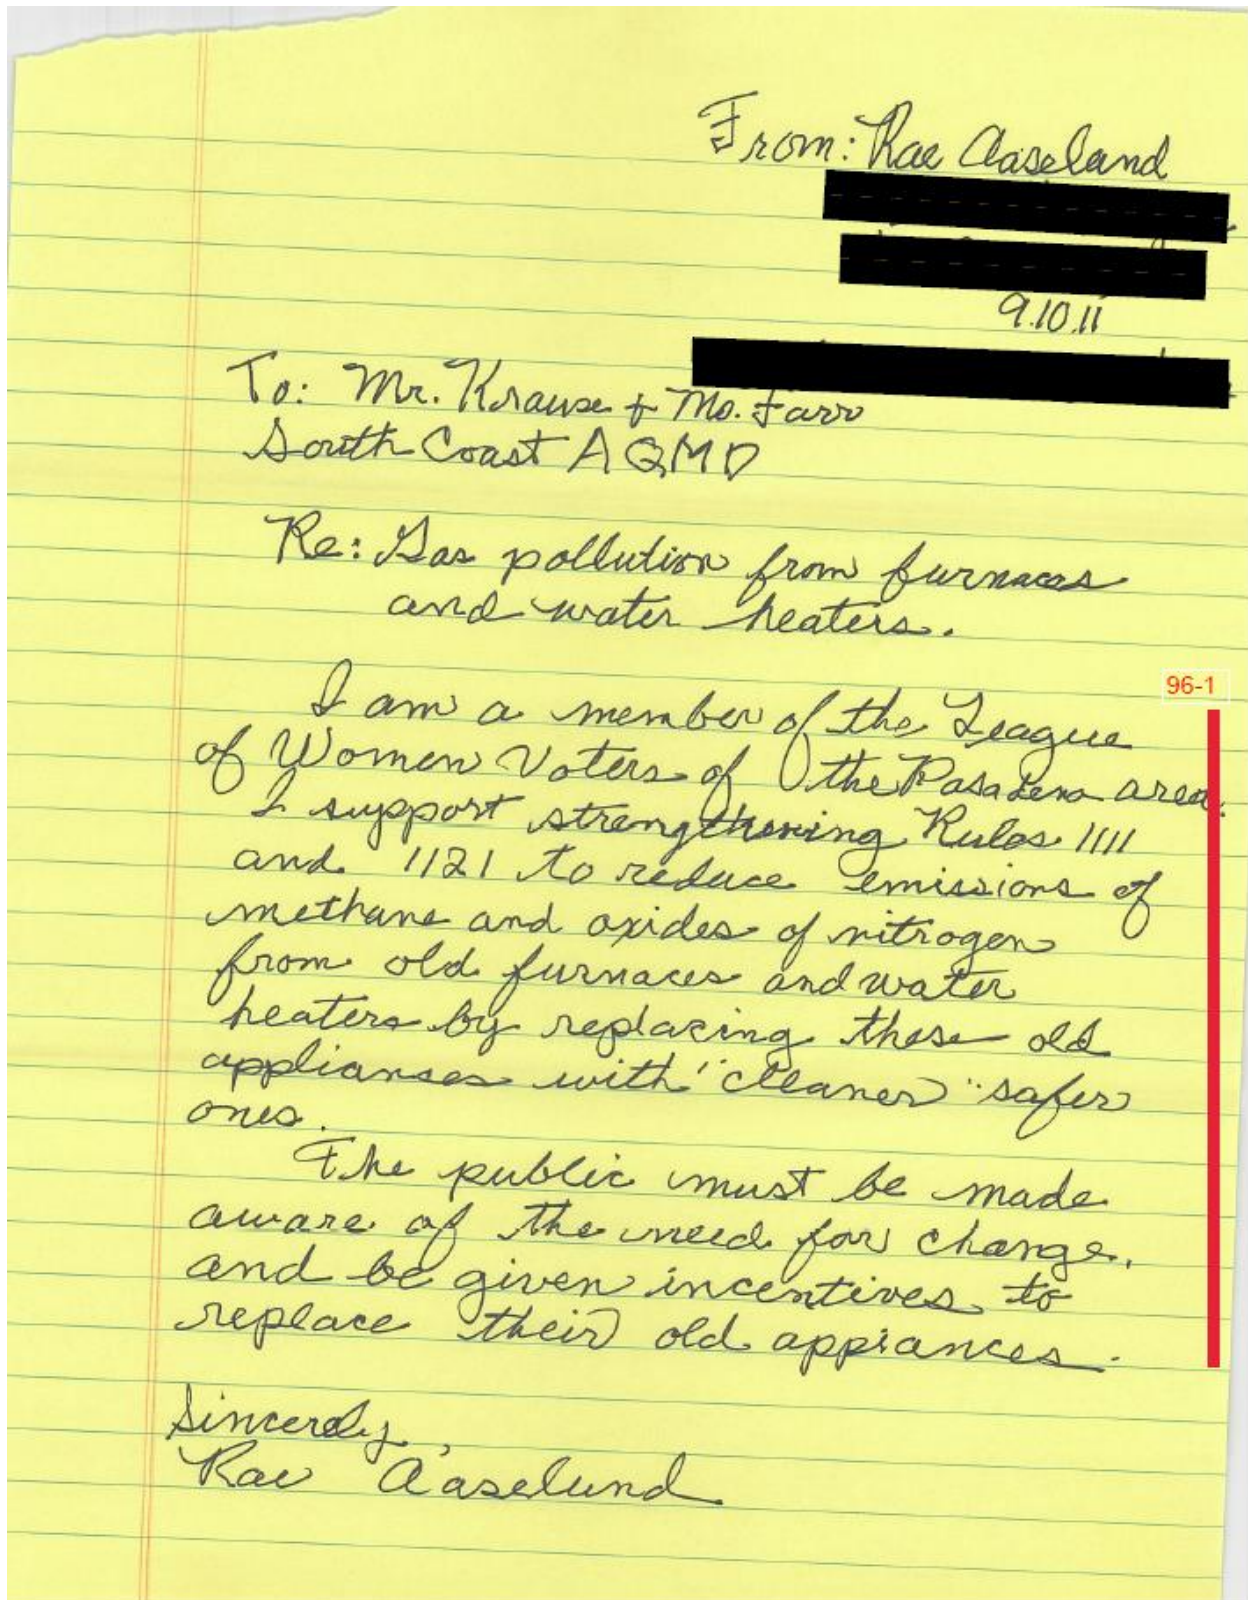 From: Rae Aaseland
9.10.11
To: Mr. Krause & Ms. Farr
South Coast AQMD
Re: Gas pollution from furnaces
and water heaters.
96-1
I am a member of the League
of Women Voters of the Pasadena area.
I support strengthening Rules 1111
and 1121 to reduce emissions of
methane and oxides of nitrogen
from old furnaces and water
heaters by replacing these old
appliances with "cleaner" safer
ones.
The public must be made
aware of the need for change,
and be given incentives to
replace their old appiances.
Sincerely,
Rae Aaselund